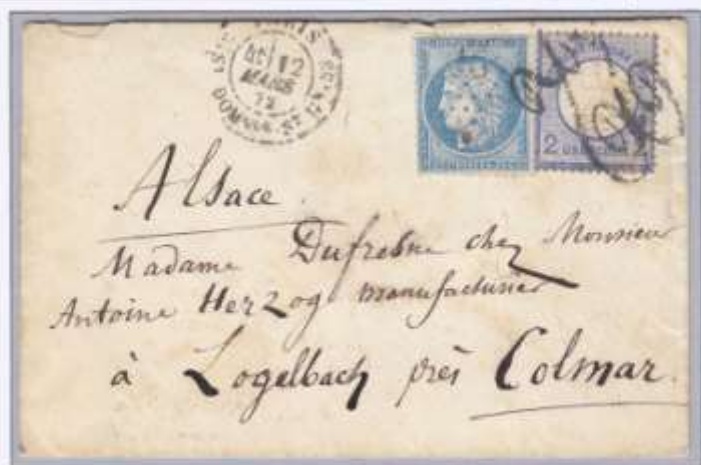 PARIS
12
MARS
Alsace
Madame Dufresne chez Monsieur
Antoine Herzog manufacturier
à Logelbach près Colmar.
2